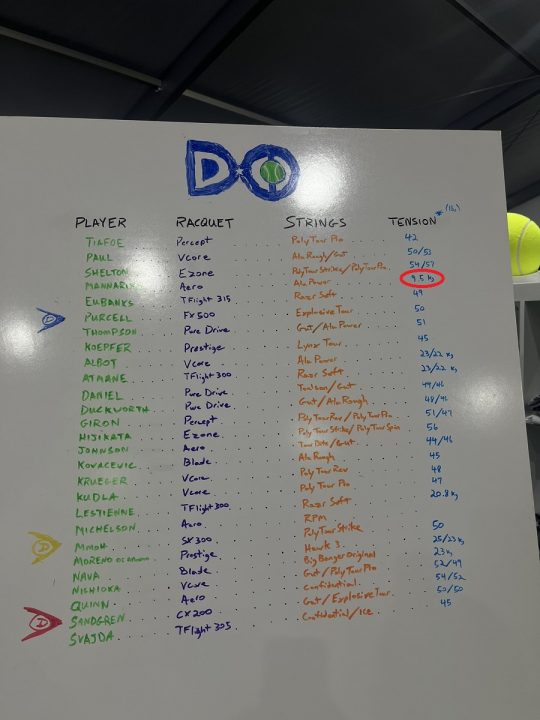 DO
PLAYER RACQUET STRINGS TENSION * (lbs)
TIAFOE Percept Poly Tour Pro 42
PAUL Vcore Alu Rough/Gut 50/53
SHELTON Ezone PolyTourStrike/PolyTourPro 54/57
MANNARINO Aero Alu Power 9.5 kg
EUBANKS TFlight 315 Razor Soft 49
D PURCELL FX500 Explosive Tour 50
THOMPSON Pure Drive Gut/Alu Power 51
KOEPFER Prestige Lynx Tour 45
ALBOT Vcore Alu Power 23/22 kg
ATMANE TFlight 300 Razr Soft 23/22 kg
DANIEL Pure Drive /Gut 44/46
DUCKWORTH Pure Drive Gut/Alu Rough 48/46
GIRON Percept PolyTourRev/PolyTourPro 51/47
HIJIKATA Ezone PolyTourStrike/PolyTourSpin 56
JOHNSON Aero Tour Bite/Gut 44/46
KOVACEVIC Blade Alu Rough 45
KRUEGER Vcore Poly Tour Rev 48
KUDLA Vcore Poly Tour Pro 47
LESTIENNE TFlight300 Razor Soft 20.8 kg
MICHELSON Aero RPM
D MMOH SX300 PolyTourStrike 50
MORENO DE ALBORAN Prestige Hawk 3 25/23 kg
NAVA Blade Big Banger Original 23 kg
NISHIOKA Vcore Gut/PolyTourPro 52/49
QUINN Aero Confidential 54/52
D SANDGREN CX200 Gut/ExplosiveTour 50/50
SVAJDA TFlight 305 Confidential/Ice 45